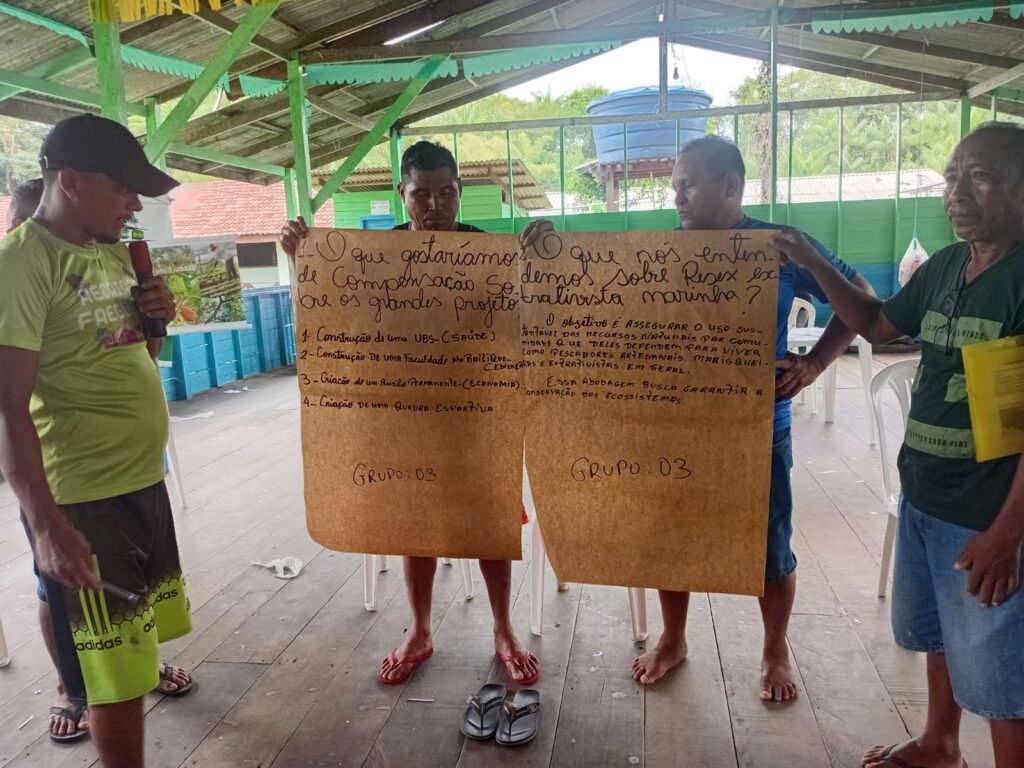 O que gostaríamos
de Compensação So-
bre os grandes projeto
1 Construção de uma UBS-(SAÚDE)
2- Construção DE UMA Faculdade No BAiLiQUE
3- Criação de um Auxílio Permanente-(ECONOMIA)
4- Criação DE UMA QUADRA ESPORTIVA
GRUPO: 03
O que nós enten-
demos sobre Resex ex
trativista marinha?
O objetivo é ASSEGURAR O USO SUS-
TENTÁVEL DAS RECURSOS NATURAIS POR COMU
NIDADE QUE DELES DEPENDEM PARA VIVER
COMO PESCADORES ARTESANAIS, MARISQUEI-
E EXTRATIVISTAS EM GERAL.
ESSA ABODAGEM BUSCA GARANTIR A
CONSERVAÇÃO DOS ECOSSISTEMAS.
GRUPO: 03
adidas
adidas